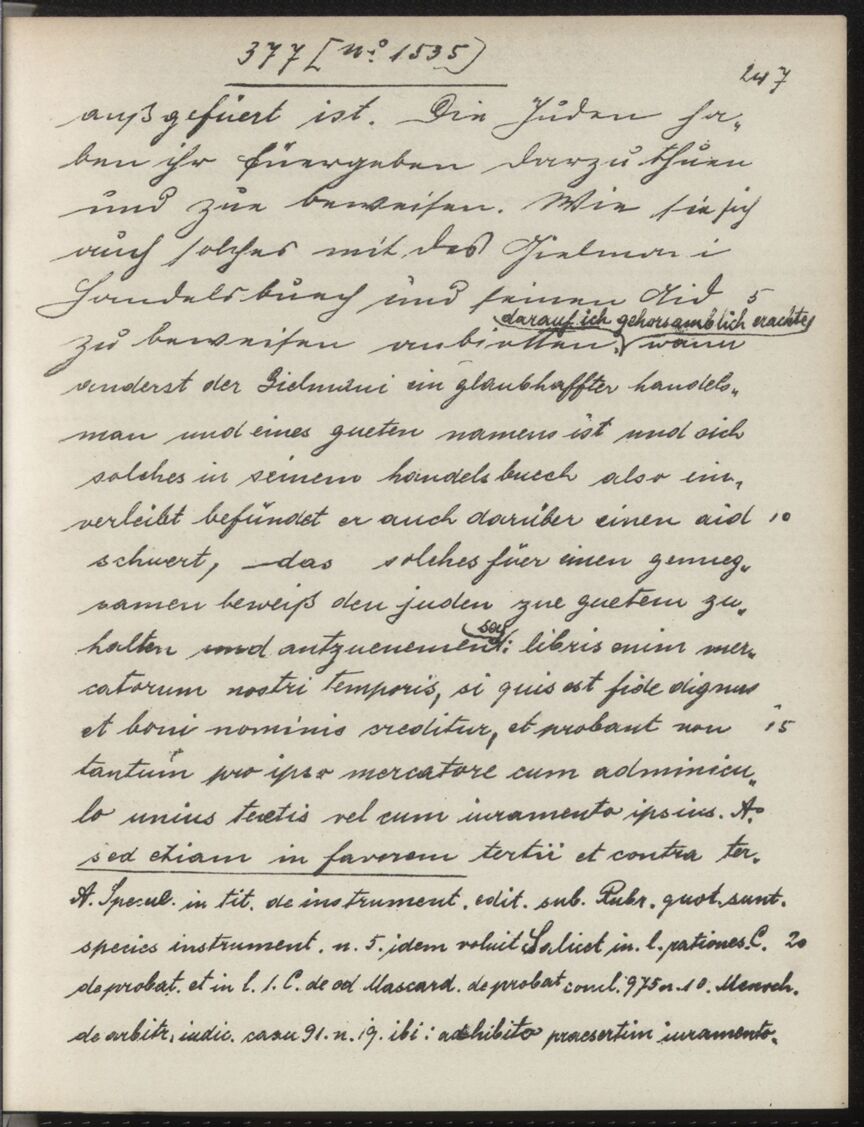 377 [No. 1535]
247
außgefüert ist. Die Juden ha„
ben ihr füergeben darzuthuen
und zue beweisen. Wie sie sich
auch solches mit des Gielmani
Handelsbuech und seinen Aid 5
darauf ich gehorsamblich erachte
zu beweisen anbiotten, wann
anderst der Gielmani ein glaubhaffter handels„
man und eines gueten namens ist und sich
solches in seinem handelsbuech also ein„
verleibt befündet er auch darüber einen aid 10
schwert, das solches füer einen genueg„
samen beweiß den juden zue guetem zu„
sey
halten und antzuenemen: libris enim mer„
catorum nostri temporis, si quis est fide dignus
et boni nominis creditur, et probant non 15
tantum pro ipso mercatore cum adminicu„
lo unius testis vel cum iuramento ipsius. A.
sed etiam in favorem tertii et contra ter„
A. Specul. in tit. de instrument. edit. sub. Rubr. quot. sunt.
species instrument. n. 5. idem voluit Salicet in. l. rationes. C. 20
de probat. et in l. 1. C. de ed Mascard. de probat concl. 975 n. 10. Menoch.
de arbitr. iudic. casu 91. n. 19. ibi: adhibito praesertim iuramento.